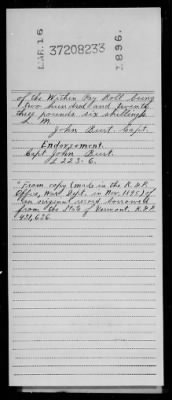 MAR. 16
37208233
1896.
of the Within Pay Roll being
two hundred and twenty
three pounds six shillings
L. M.
John Burt. Capt.
Endorsement.
Capt John Burt.
£223-6.
From copy (made in the R. & P.
Office, War Dept. in Nov. 1895) of
an original record borrowed
from the State of Vermont. R. & P.
431,636